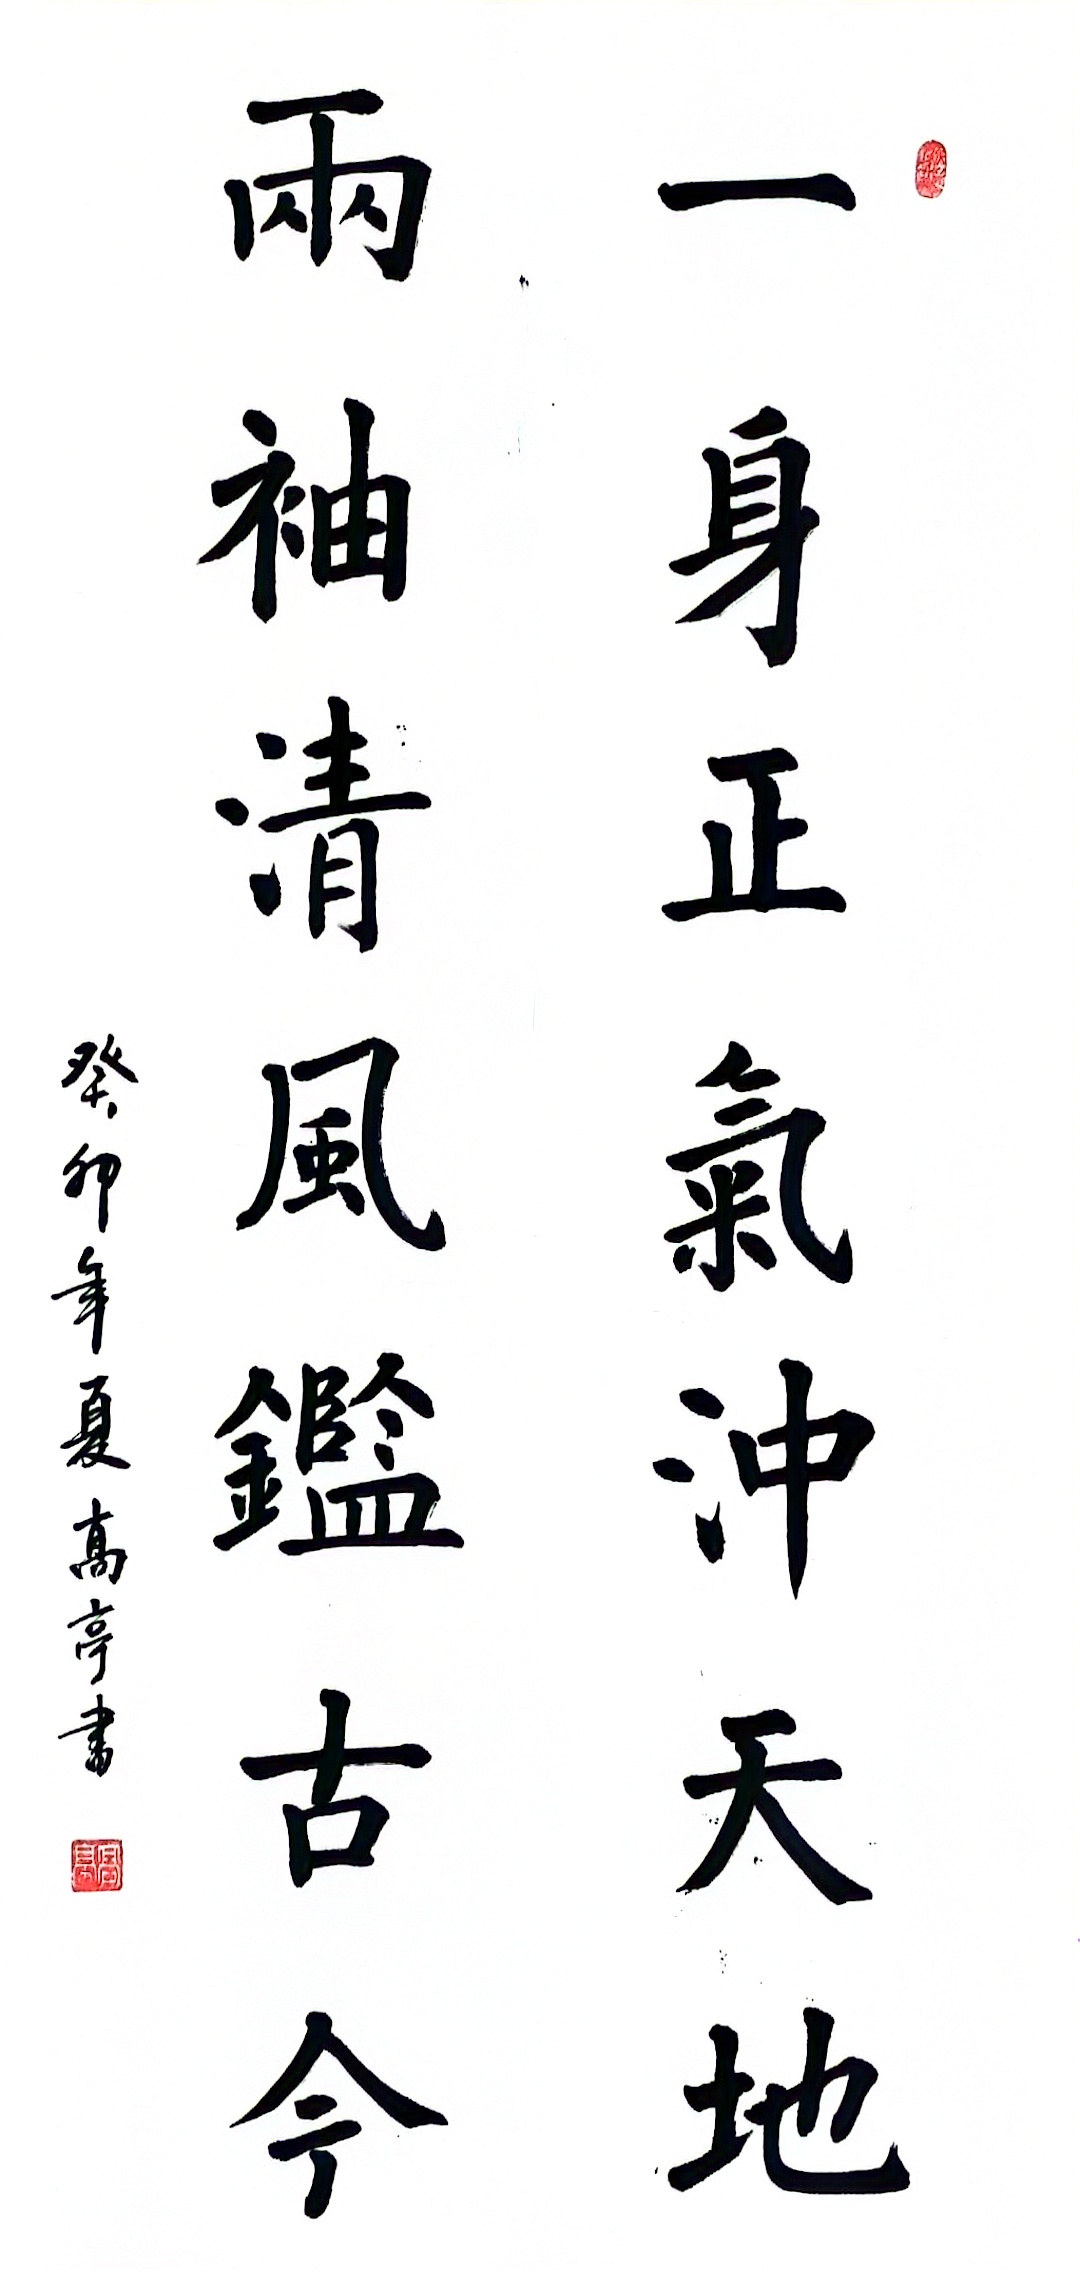 一身正氣沖天地
兩袖清風鑑古今
癸卯年夏高亭書